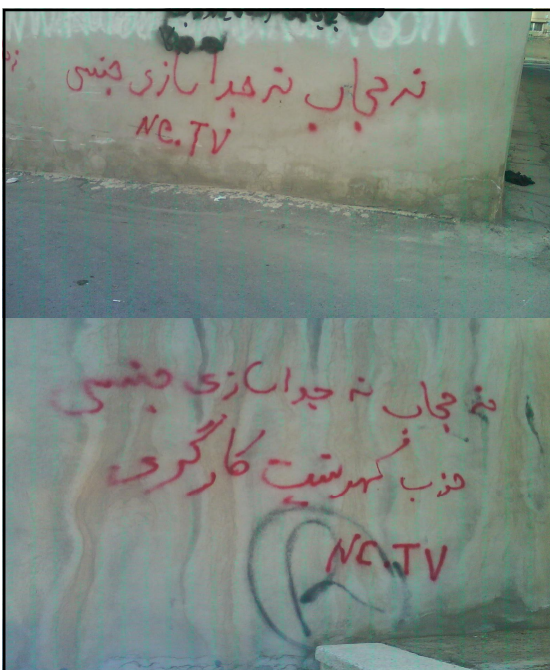 نه حجاب نه جداسازی جنسی
NC.TV
نه حجاب نه جداسازی جنسی
حزب کمونیست کارگری
NC.TV